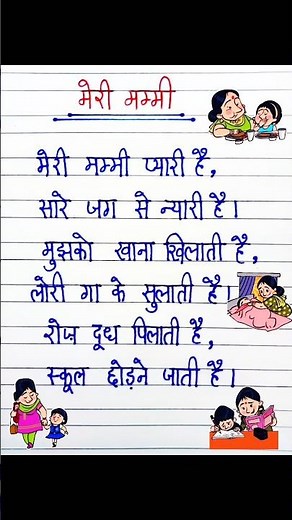 मेरी मम्मी
मेरी मम्मी प्यारी है,
सारे जग से न्यारी है।
मुझको खाना खिलाती है,
लोरी गा के सुलाती है।
रोज़ दूध पिलाती है,
स्कूल छोड़ने जाती है।